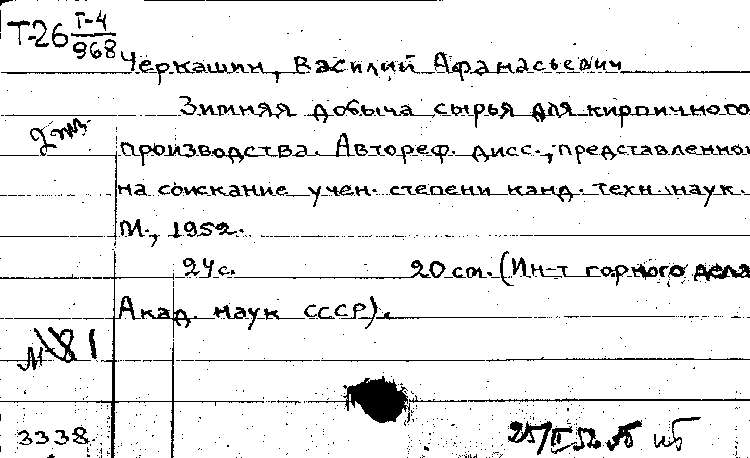 Т-26 Т-4/968
Черкашин, Василий Афанасьевич
Зимняя добыча сырья для кирпичного
2 экз.
производства. Автореф. дисс., представленной
на соискание учен. степени канд. техн. наук.
М., 1952.
24 с. 20 см. (Ин-т горного дела
Акад. наук СССР).
М-81
3338